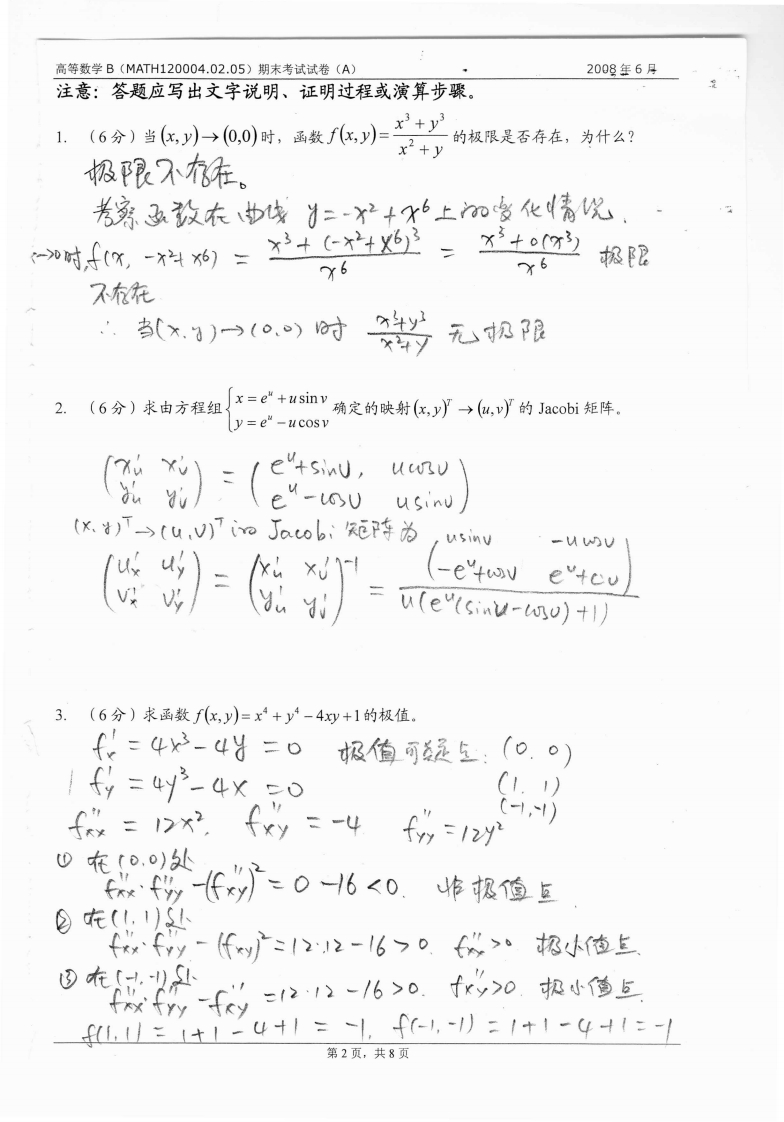 高等数学 B（MATH120004.02.05）期末考试试卷（A） 2008 年 6 月
注意：答题应写出文字说明、证明过程或演算步骤。
1. （6 分）当 (x, y)→(0,0) 时，函数 f(x, y) = (x³ + y³)/(x² + y) 的极限是否存在，为什么？
极限不存在。
考察函数在曲线 y = -x² + x⁶ 上的变化情况.
x→0时, f(x, -x²+x⁶) = (x³ + (-x²+x⁶)³)/x⁶ = (x³ + o(x³))/x⁶ 极限
不存在
∴ 当(x,y)→(0,0) 时 (x³+y³)/(x²+y) 无极限
2. （6 分）求由方程组 { x = eᵘ + u sin v, y = eᵘ − u cos v 确定的映射 (x, y)ᵀ → (u, v)ᵀ 的 Jacobi 矩阵。
(x'u x'v; y'u y'v) = (eᵘ+sinv, ucosv; eᵘ-cosv usinv)
(x, y)ᵀ→(u, v)ᵀ 的 Jacobi 矩阵为
(u'x u'y; v'x v'y) = (x'u x'v; y'u y'v)⁻¹ = (usinv -ucosv; -eᵘ+cosv eᵘ+)/(u(eᵘ(sin-cosv)+1))
3. （6 分）求函数 f(x, y) = x⁴ + y⁴ − 4xy + 1 的极值。
f'x = 4x³ - 4y = 0 极值可疑点: (0. 0)
f'y = 4y³ - 4x = 0 (1. 1)
(-1,-1)
f''xx = 12x², f''xy = -4 f''yy = 12y²
① 在(0.0)处
f''xx · f''yy - (f''xy)² = 0 - 16 < 0. 非极值点
② 在(1, 1)处
f''xx · f''yy - (f''xy)² = 12·12 - 16 > 0 f''xx > 0 极小值点.
③ 在(-1,-1)处
f''xx f''yy - f''xy = 12·12 - 16 > 0. f''xy > 0. 极小值点
f(1,1) = 1+1-4+1 = -1, f(-1,-1) = 1+1-4+1 = -1
第 2 页，共 8 页